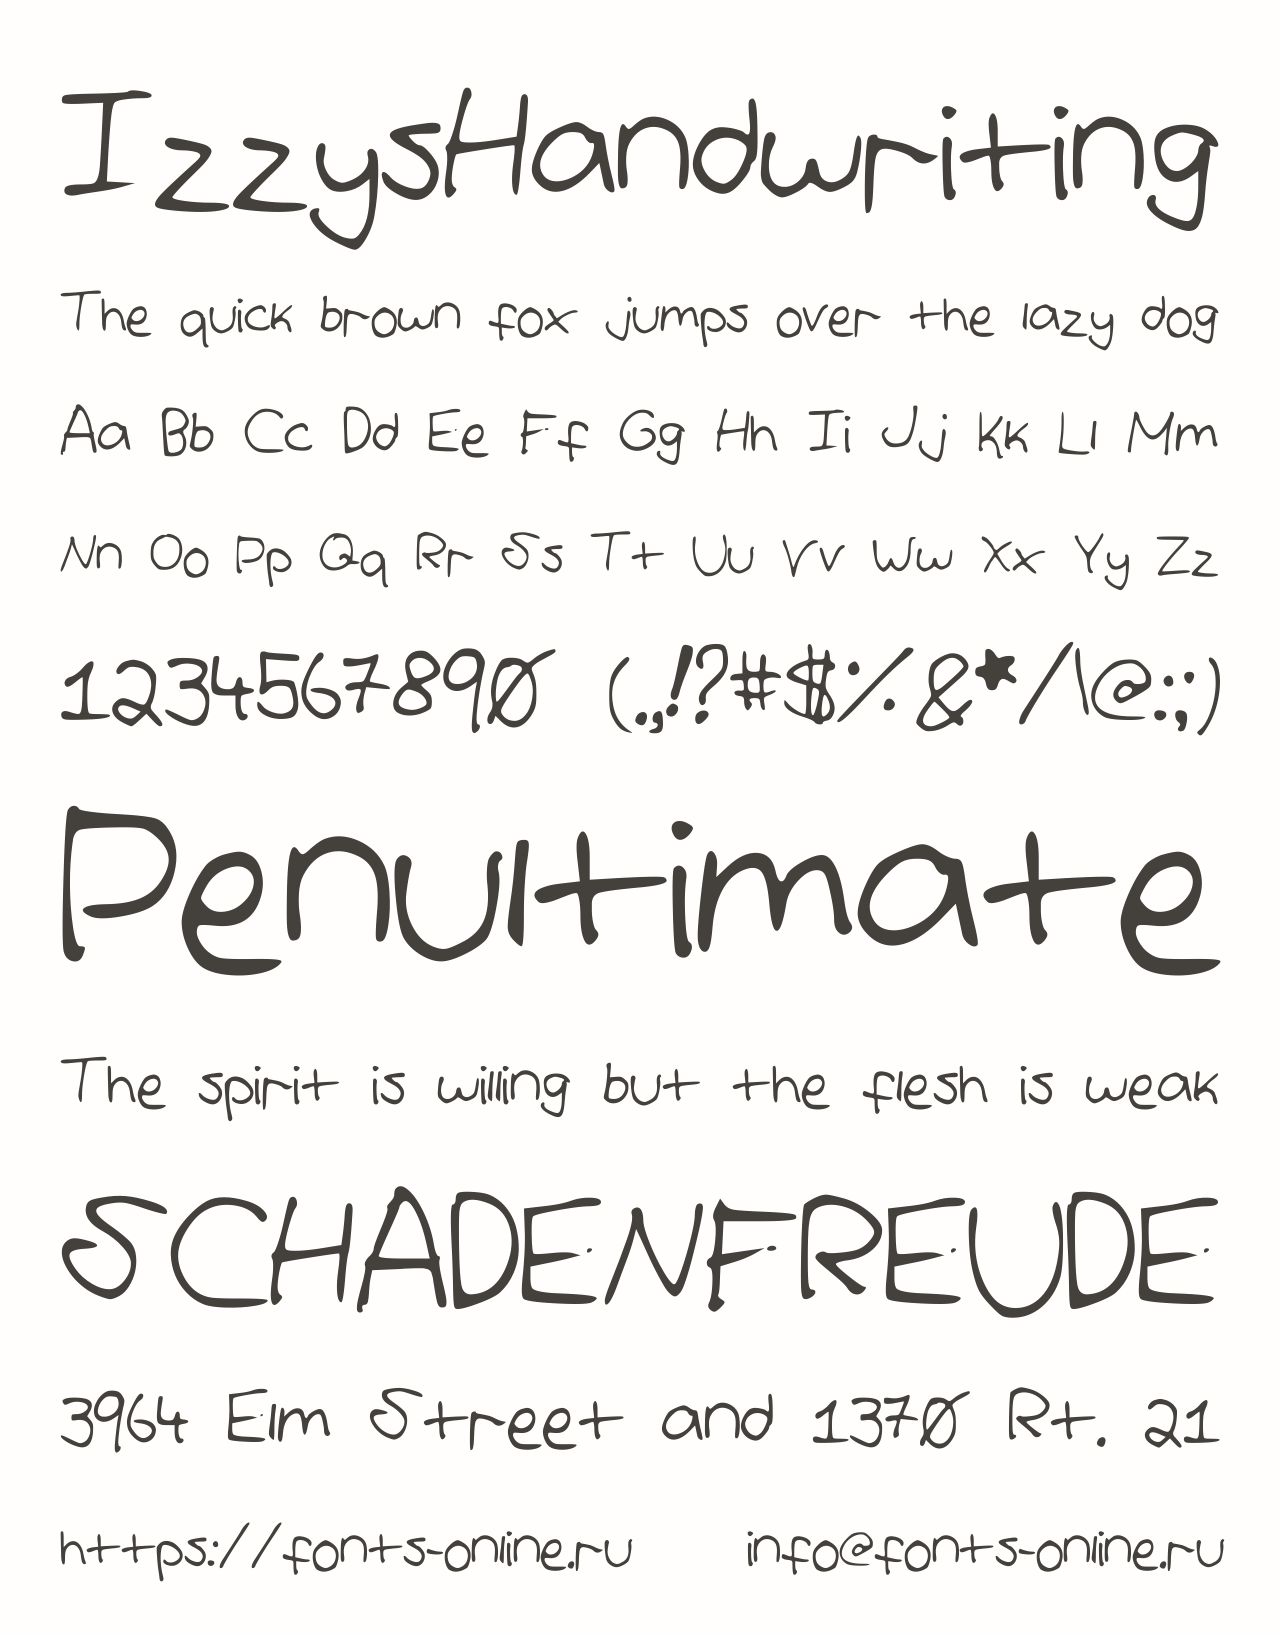 IzzysHandwriting
The quick brown fox jumps over the lazy dog
Aa Bb Cc Dd Ee Ff Gg Hh Ii Jj Kk Ll Mm
Nn Oo Pp Qq Rr Ss Tt Uu Vv Ww Xx Yy Zz
1234567890 (.,!?#$%&*/\@:;)
Penultimate
The spirit is willing but the flesh is weak
SCHADENFREUDE
3964 Elm Street and 1370 Rt. 21
https://fonts-online.ru info@fonts-online.ru